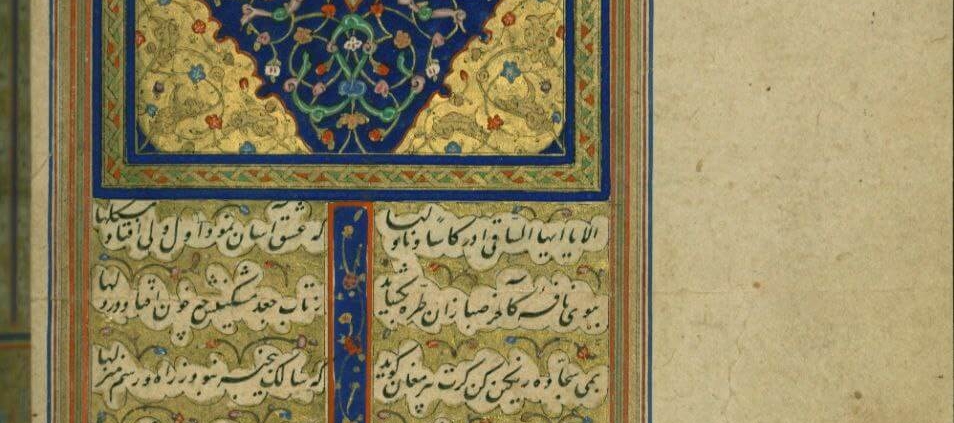 الا یا ایها الساقی ادر کاسا و ناولها
که عشق آسان نمود اول ولی افتاد مشکلها
ببوی نافه کآخر صبا زان طره بگشاید
ز تاب جعد مشکینش چه خون افتاد در دلها
بمی سجاده رنگین کن گرت پیر مغان گوید
که سالک بیخبر نبود ز راه و رسم منزلها